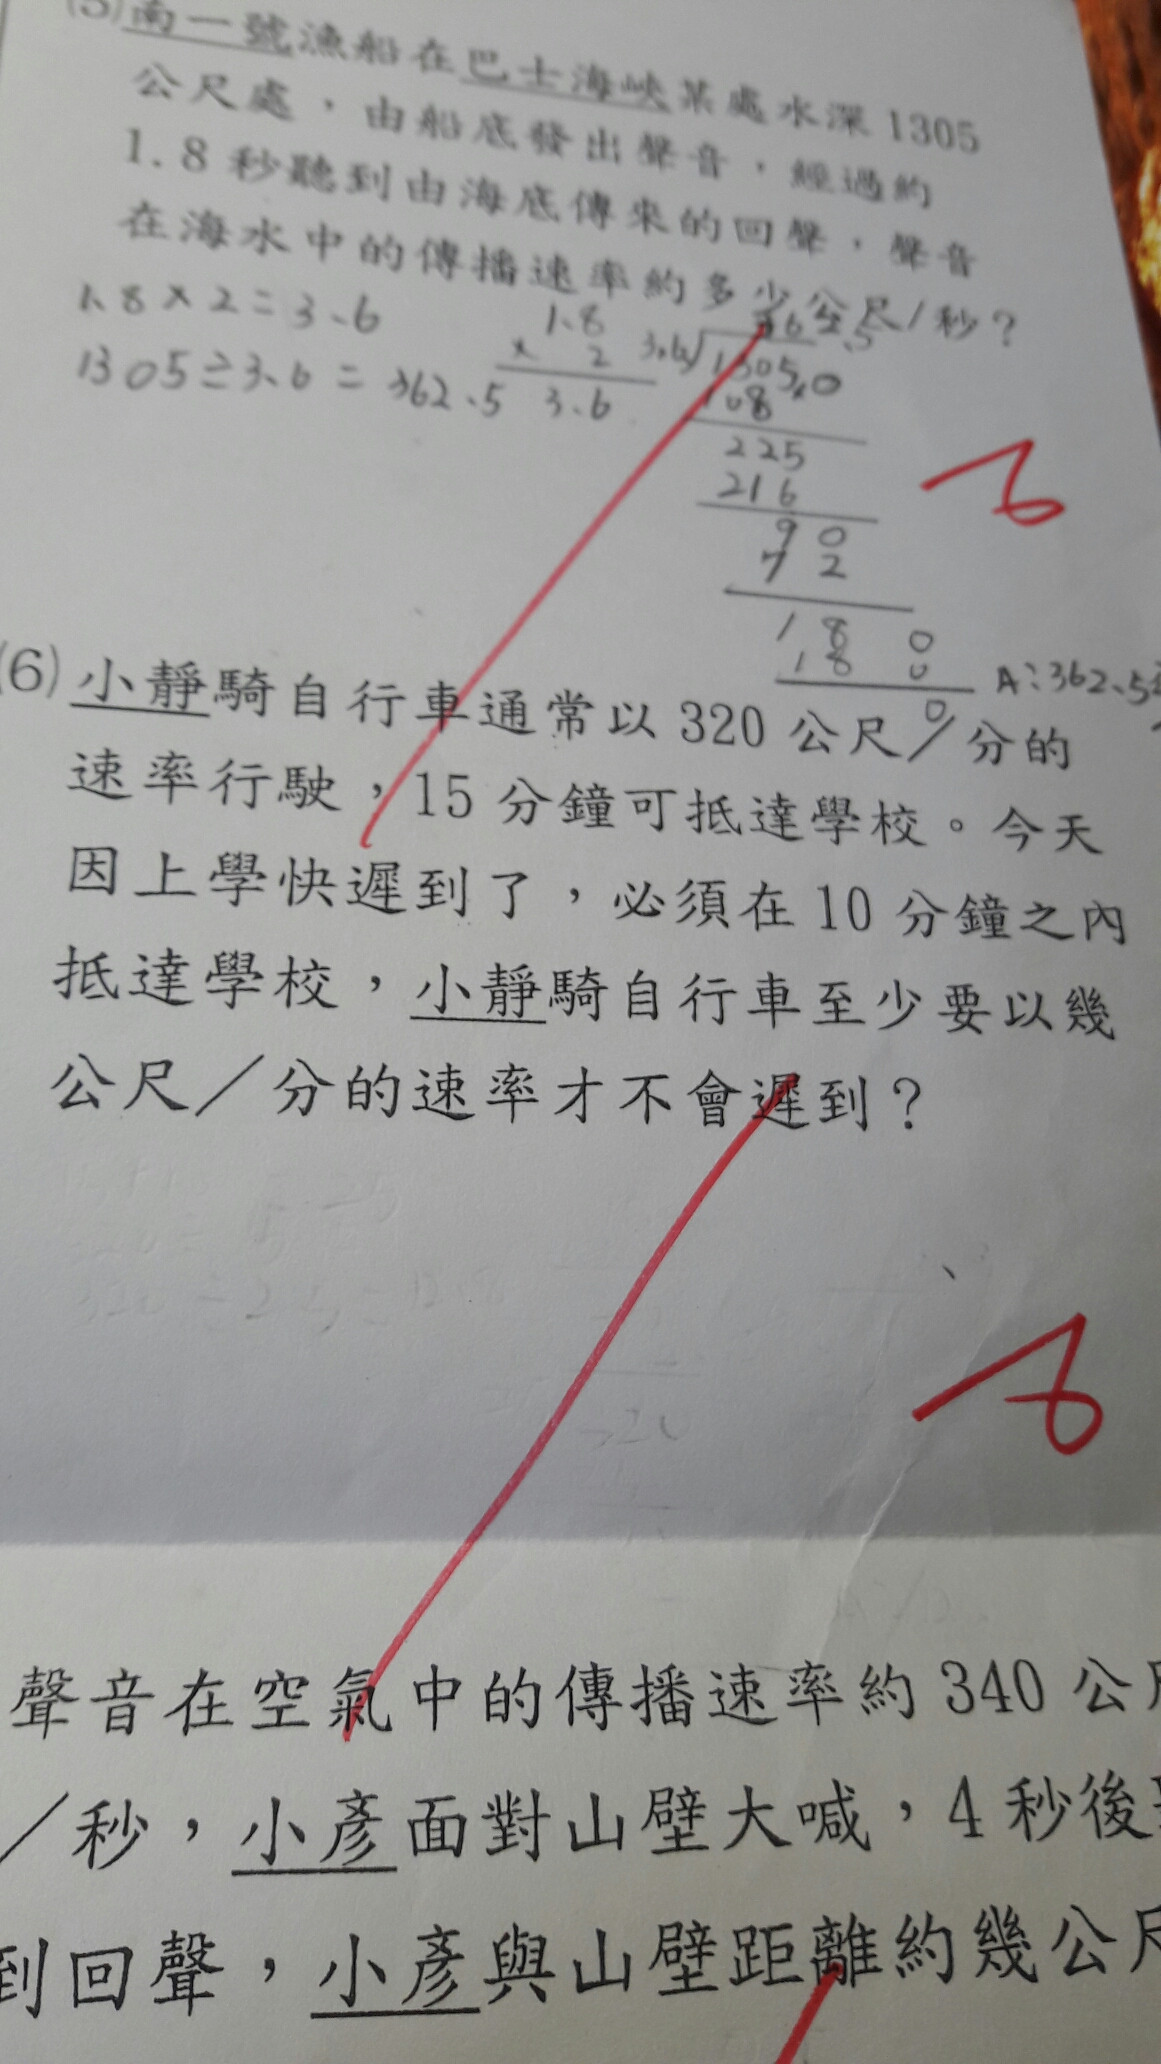 (5)南一號漁船在巴士海峽某處水深1305
公尺處，由船底發出聲音，經過約
1.8秒聽到由海底傳來的回聲，聲音
在海水中的傳播速率約多少公尺/秒？
1.8×2=3.6
1305÷3.6=362.5
1.8
× 2
3.6
3.6 1305.0
108
225
216
90
72
180
180
0
A:362.5
(6)小靜騎自行車通常以320公尺/分的
速率行駛，15分鐘可抵達學校。今天
因上學快遲到了，必須在10分鐘之內
抵達學校，小靜騎自行車至少要以幾
公尺/分的速率才不會遲到？
聲音在空氣中的傳播速率約340公
/秒，小彥面對山壁大喊，4秒後
到回聲，小彥與山壁距離約幾公尺